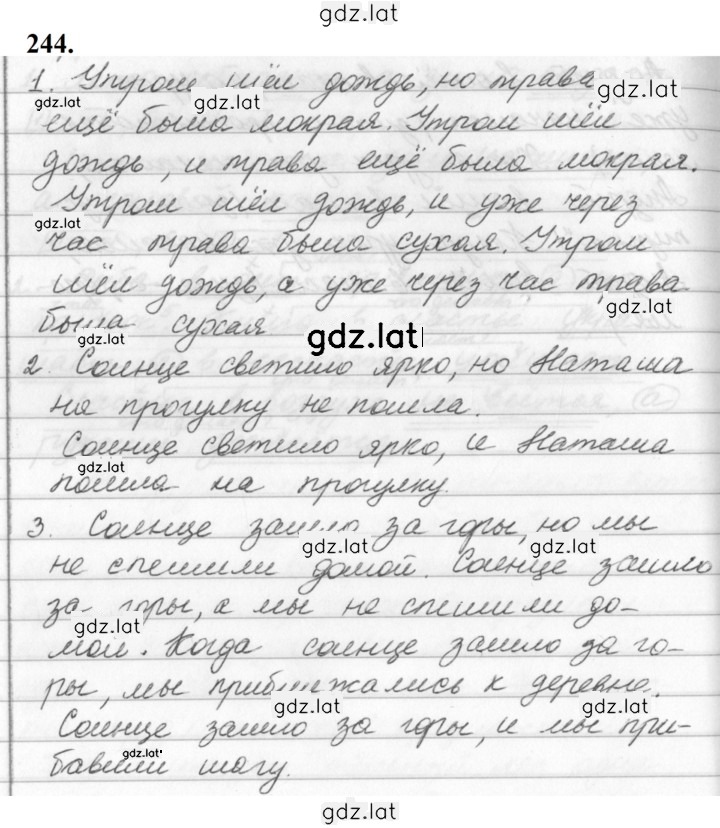 gdz.lat
244.
1. Утром шёл дождь, но трава
gdz.lat gdz.lat
ещё была мокрая. Утром шёл
дождь, и трава ещё была мокрая.
Утром шёл дождь, и уже через
gdz.lat
час трава была сухая. Утром
шёл дождь, а уже через час трава
gdz.lat
была сухая
gdz.lat gdz.lat
2. Солнце светило ярко, но Наташа
на прогулку не пошла.
Солнце светило ярко, и Наташа
gdz.lat
пошла на прогулку.
3. Солнце зашло за горы, но мы
gdz.lat gdz.lat
не спешили домой. Солнце зашло
за горы, а мы не спешили до-
gdz.lat
мой. Когда солнце зашло за го-
ры, мы приближались к деревне.
gdz.lat gdz.lat
Солнце зашло за горы, и мы при-
gdz.lat
бавили шагу.
gdz.lat